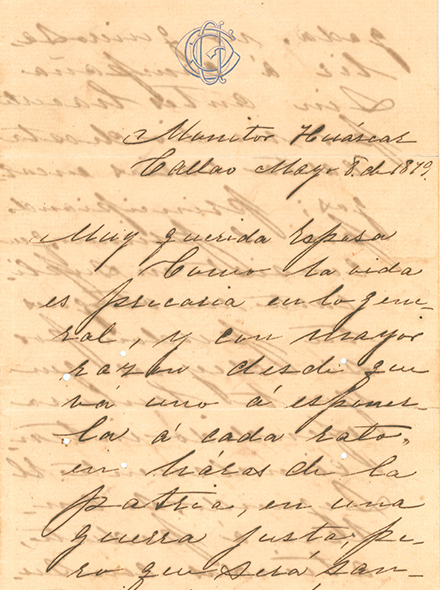 Monitor Huáscar
Callao Mayo 8 de 1879.
Muy querida Esposa
Como la vida
es precaria en lo gene-
ral, y con mayor
razon desde que
vá uno á esponer-
la á cada rato,
en háras de la
patria, en una
guerra justa, pe-
ro que será san-